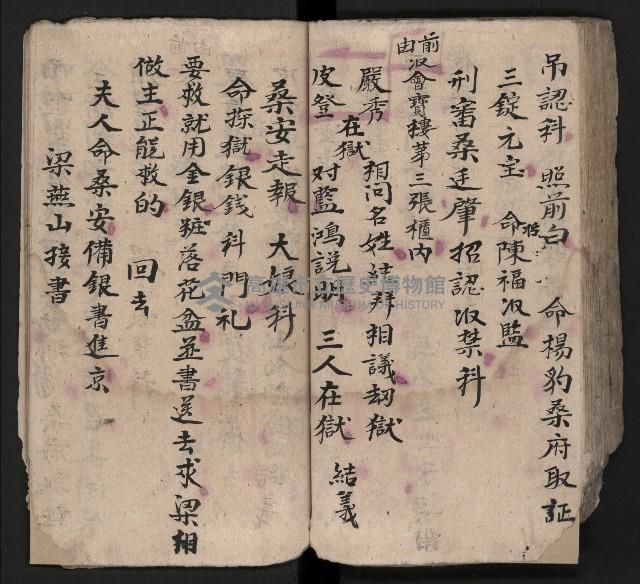 吊認科 照前白 命楊豹桑府取証
三錠元宝 命陳福収監
刑審桑廷肇招認収禁科
前収會寳樓苐三張櫃内
由
嚴秀 在獄 相问名姓結群相議刼獄
皮登 对藍鴻説明 三人在獄 結義
桑安走報 大娘科
命探獄銀銭科門礼
要救就用金銀粧落花盆並書送去求梁相
做主正能救的 回去
夫人命桑安備銀書進京
梁燕山接書
高雄市立歷史博物館
KAOHSIUNG MUSEUM OF HISTORY